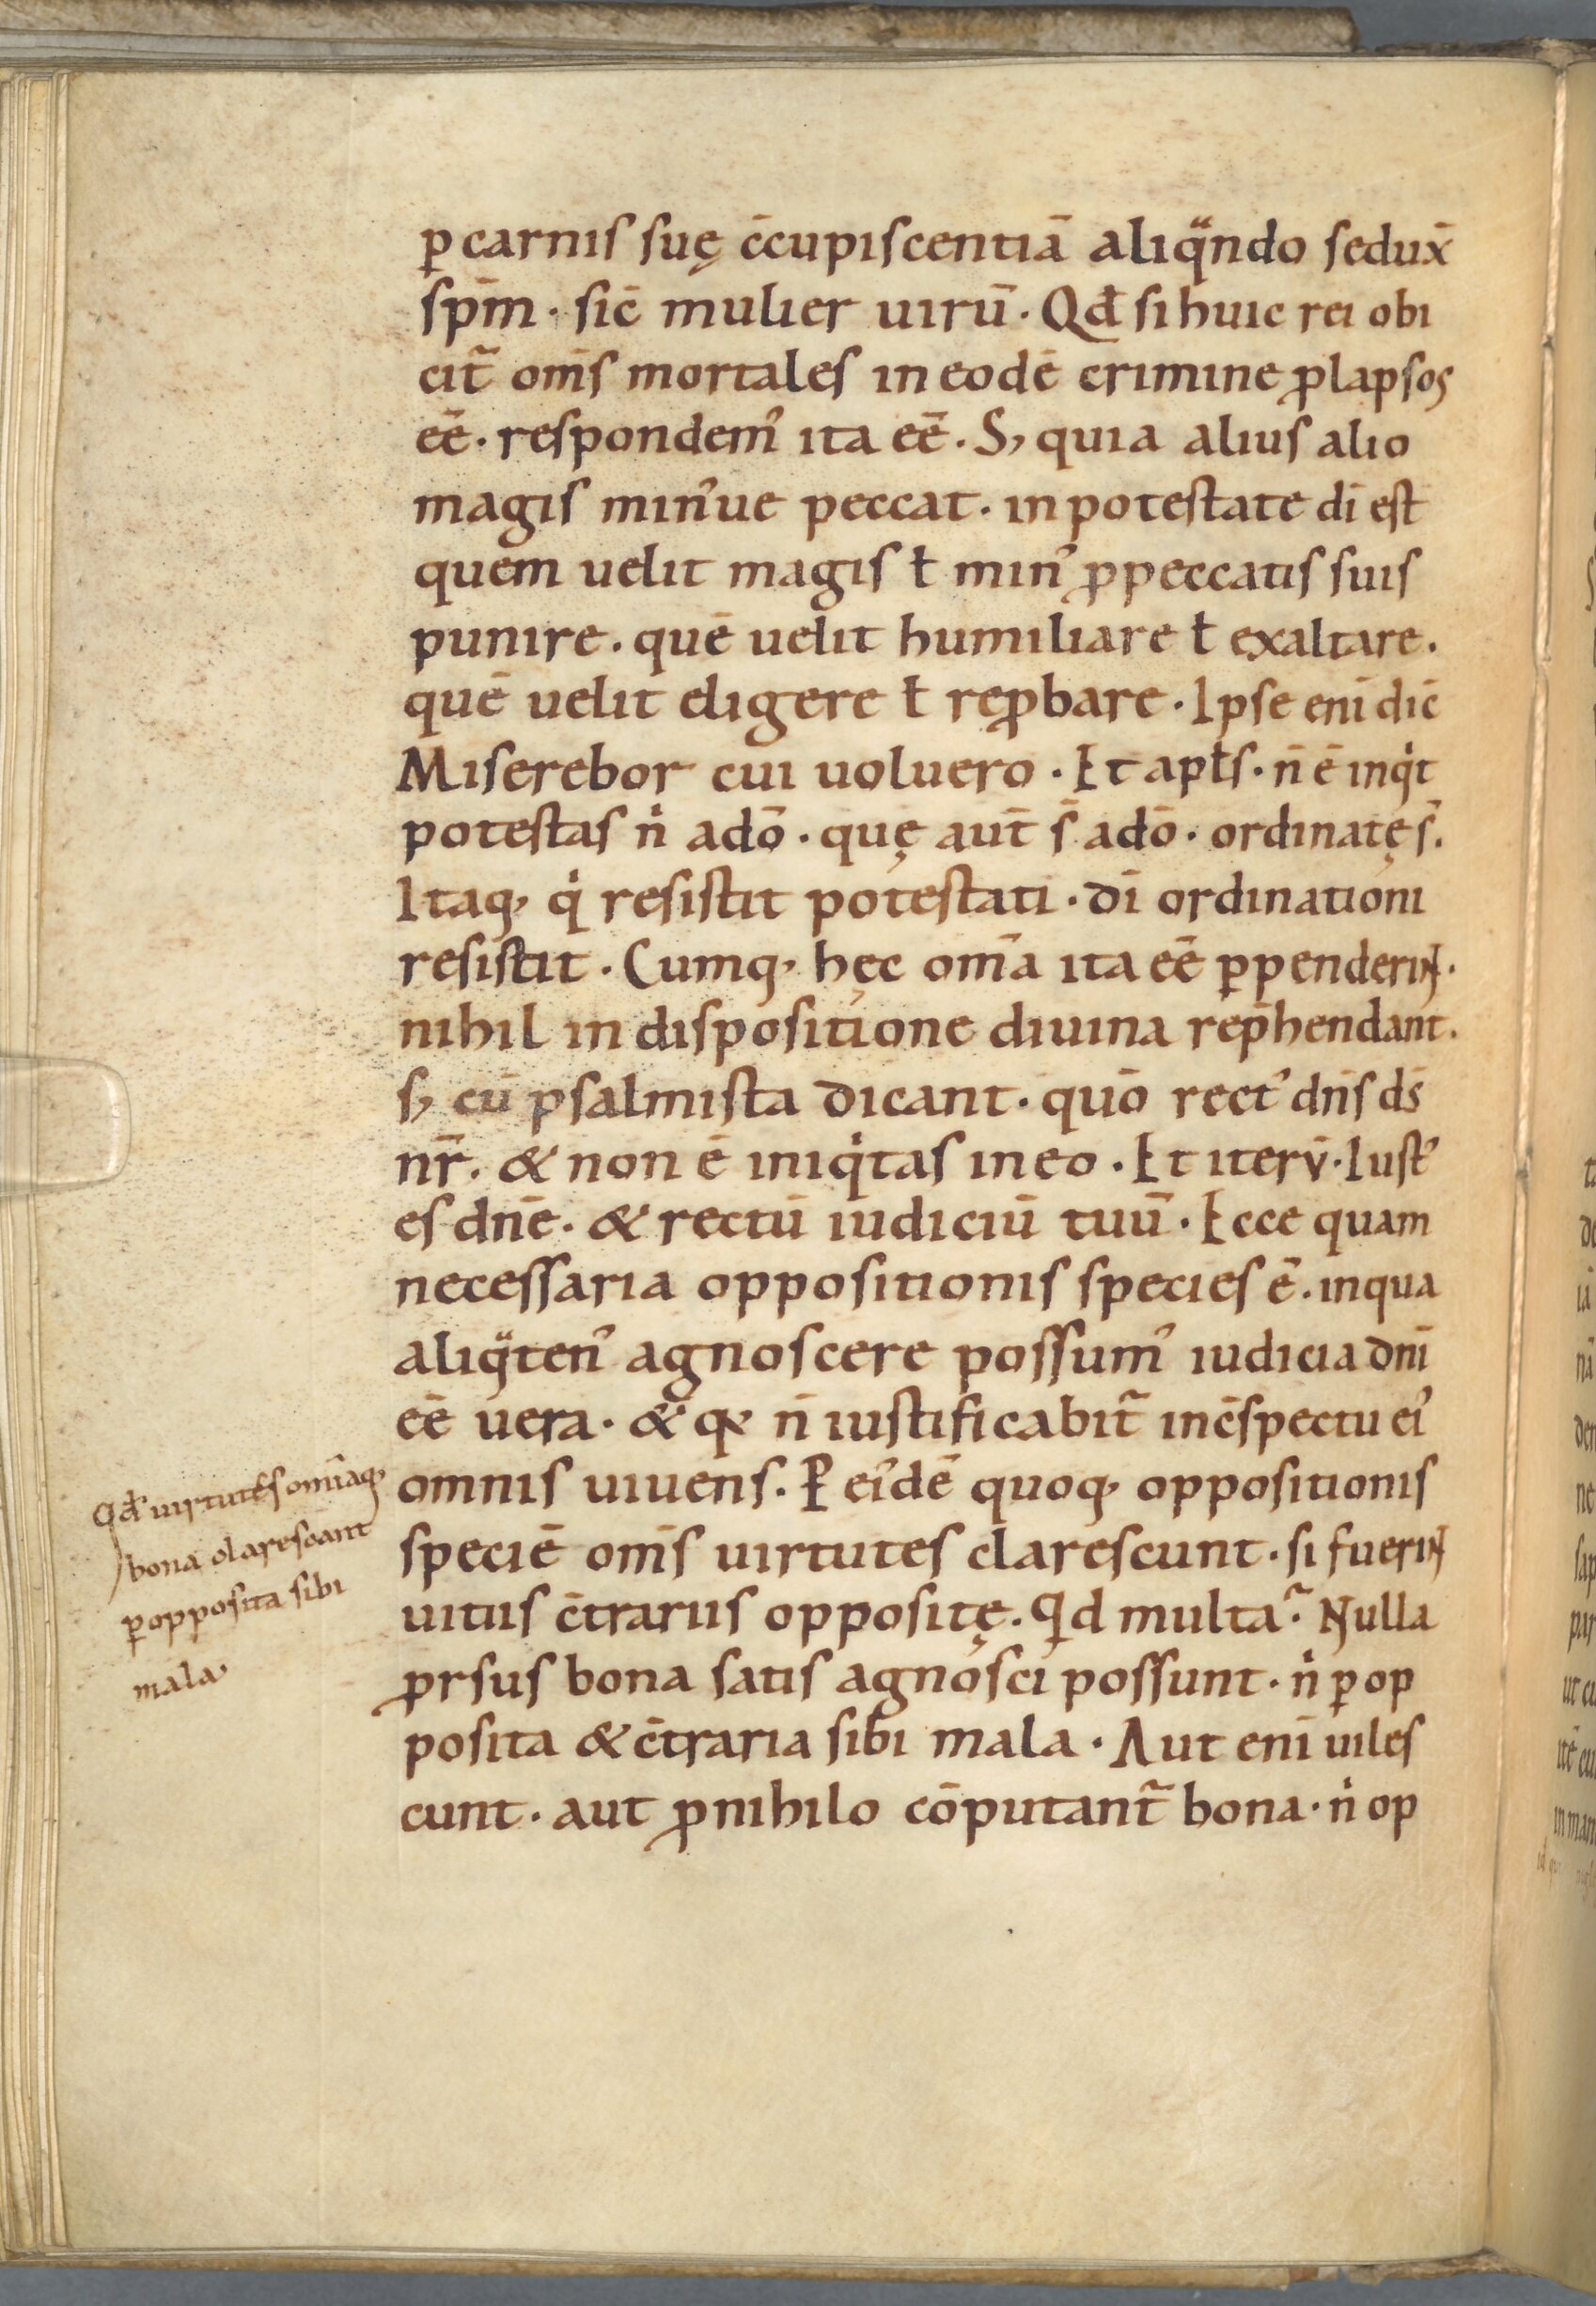 ꝑ carnis suę c̄cupiscentiā aliqͣndo sedux̄
sp̄m · sic̄ mulier uirū · Qđ si huic rei obi
cit᷑ om̄s mortales in eodē crimine ꝓlapsos
eē · respondem᾽ ita eē · S, quia alius alio
magis min᾽ue peccat · in potestate dī est
quem uelit magis ł min᾽ ꝓ peccatis suis
punire · quē uelit humiliare ł exaltare ·
quē uelit eligere ł reꝓbare · Ipse eni̅ dic̄
Miserebor cui uoluero · Et apłs · n̄ ē inqͥt
potestas nͥ adō · quę aut̄ s̄ adō · ordinatę s̄.
Itaq, qͥ resistit potestati · dī ordinationi
resistit · Cumq, hęc om̄a ita eē ꝑpenderint ·
nihil in dispositione diuina rep̄hendant ·
s, cū psalmista dicant · quō rect᾽ dn̄s ds̄
nr̄ · & non ē iniqͥtas in eo · Et iterū · Iust᾽
es dn̄e · & rectū iudiciū tuū · Ecce quam
necessaria oppositionis species ē · in qua
aliqͣten᾽ agnoscere possum᾽ iudicia dn̄i
eē uera · & qͣ n̄ iustificabit᷑ in c̄spectu ei᾽
omnis uiuens · Ꝑ ei᾽dē quoq, oppositionis
speciē om̄s uirtutes clarescunt · si fuerint
uitiis c̄trariis oppositę · Qͥd multa? Nulla
ꝓrsus bona satis agnosci possunt · nͥ ꝑ op
posita & c̄traria sibi mala · Aut eni̅ uiles
cunt · aut ꝓ nihilo cōputant᷑ bona · nͥ op
Qđ uirtutes omīaq,
bona clarescant
ꝑ opposita sibi
mala,